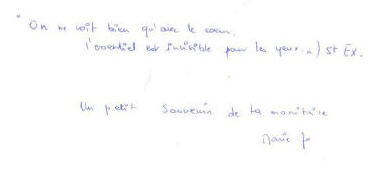 " On ne voit bien qu'avec le cœur.
l'essentiel est invisible pour les yeux..) St Ex.
Un petit souvenir de ta monitrice
Marie f